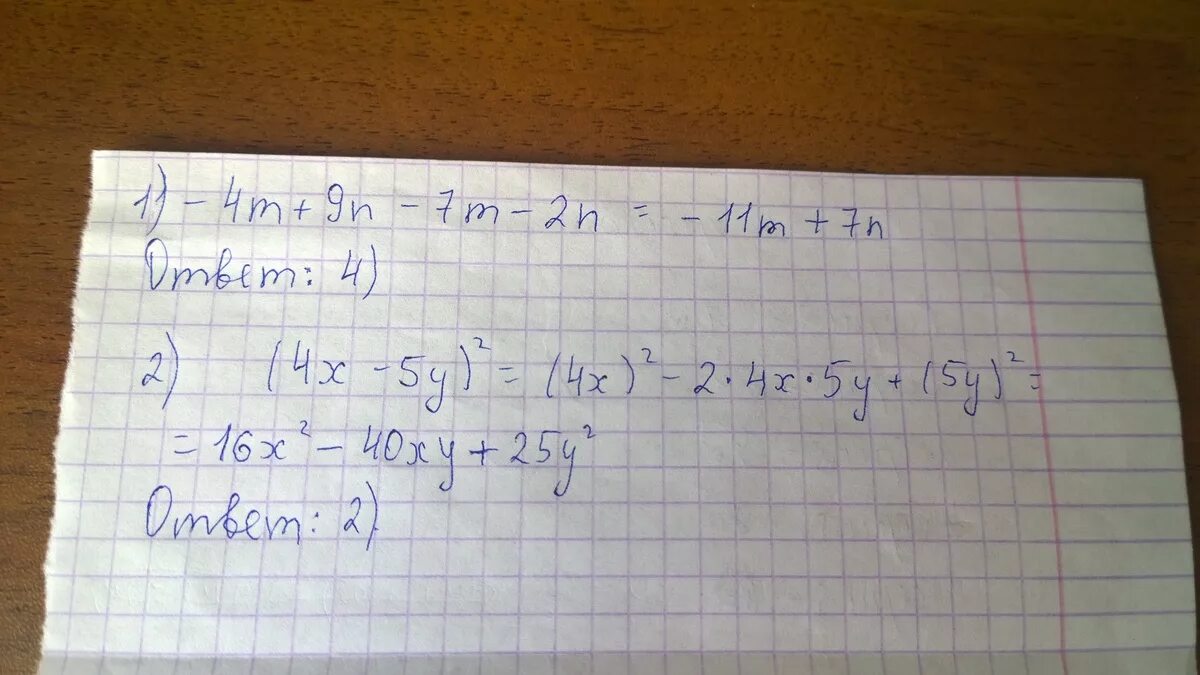 1) - 4m + 9n - 7m - 2n = - 11m + 7n
Ответ: 4)
2) (4x - 5y)² = (4x)² - 2 · 4x · 5y + (5y)² =
= 16x² - 40xy + 25y²
Ответ: 2)